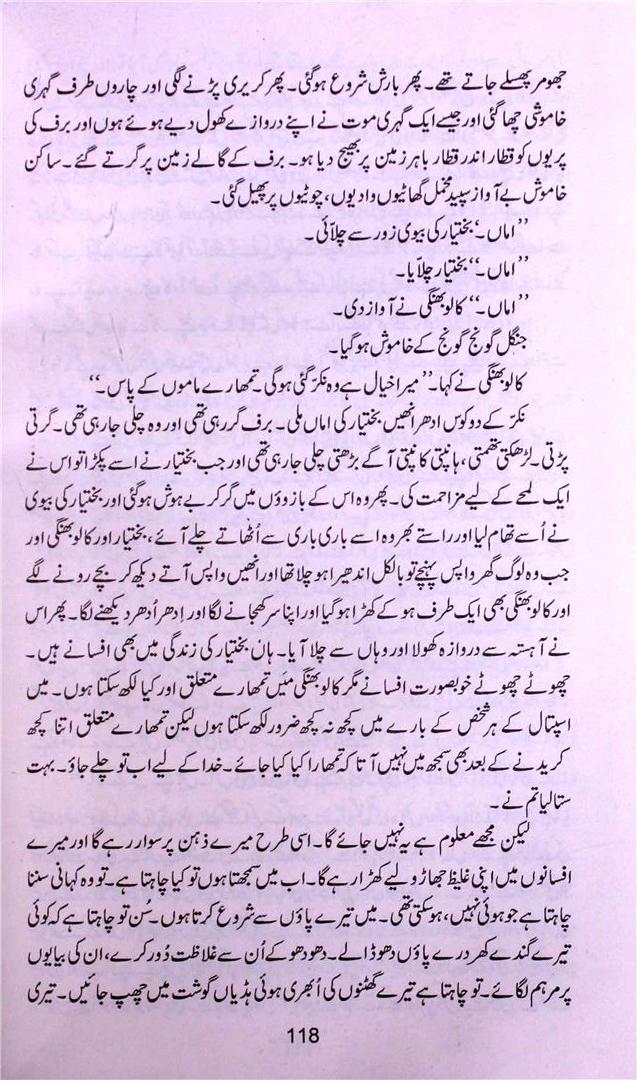 جھومر پھسلے جاتے تھے۔ پھر بارش شروع ہوگئی۔ پھر کریری پڑنے لگی اور چاروں طرف گہری
خاموشی چھا گئی اور جیسے ایک گہری موت نے اپنے دروازے کھول دیے ہوئے ہوں اور برف کی
پریوں کو قطار اندر قطار باہر زمین پر بھیج دیا ہو۔ برف کے گالے زمین پر گرتے گئے۔ ساکن
خاموش بے آواز سپید مخمل گھاٹیوں وادیوں، چوٹیوں پر پھیل گئی۔
”اماں۔“ بختیار کی بیوی زور سے چلاّئی۔
”اماں۔“ بختیار چلاّیا۔
”اماں۔“ کالو بھنگی نے آواز دی۔
جنگل گونج گونج کے خاموش ہوگیا۔
کالو بھنگی نے کہا۔ ”میرا خیال ہے وہ نکّر گئی ہوگی۔ تمھارے ماموں کے پاس۔“
نکّر کے دو کوس ادھر انھیں بختیار کی اماں ملی۔ برف گر رہی تھی اور وہ چلی جارہی تھی۔ گرتی
پڑتی۔ لڑھکتی تھمتی، ہانپتی کانپتی آگے بڑھتی چلی جارہی تھی اور جب بختیار نے اسے پکڑا تو اس نے
ایک لمحے کے لیے مزاحمت کی۔ پھر وہ اس کے بازوؤں میں گر کر بے ہوش ہوگئی اور بختیار کی بیوی
نے اُسے تھام لیا اور راستے بھر وہ اسے باری باری سے اُٹھاتے چلے آئے، بختیار اور کالو بھنگی اور
جب وہ لوگ گھر واپس پہنچے تو بالکل اندھیرا ہو چلا تھا اور انھیں واپس آتے دیکھ کر بچے رونے لگے
اور کالو بھنگی بھی ایک طرف ہو کے کھڑا ہوگیا اور اپنا سر کھجانے لگا اور اِدھر اُدھر دیکھنے لگا۔ پھر اس
نے آہستہ سے دروازہ کھولا اور وہاں سے چلا آیا۔ ہاں بختیار کی زندگی میں بھی افسانے ہیں۔
چھوٹے چھوٹے خوبصورت افسانے مگر کالو بھنگی میں تمھارے متعلق اور کیا لکھ سکتا ہوں۔ میں
اسپتال کے ہر شخص کے بارے میں کچھ نہ کچھ ضرور لکھ سکتا ہوں لیکن تمھارے متعلق اتنا کچھ
کریدنے کے بعد بھی سمجھ میں نہیں آتا کہ تمھارا کیا کیا جائے۔ خدا کے لیے اب تو چلے جاؤ۔ بہت
ستالیا تم نے۔
لیکن مجھے معلوم ہے یہ نہیں جائے گا۔ اسی طرح میرے ذہن پر سوار رہے گا اور میرے
افسانوں میں اپنی غلیظ جھاڑو لیے کھڑا رہے گا۔ اب میں سمجھتا ہوں تو کیا چاہتا ہے۔ تو وہ کہانی سننا
چاہتا ہے جو ہوئی نہیں، ہوسکتی تھی۔ میں تیرے پاؤں سے شروع کرتا ہوں۔ سُن تو چاہتا ہے کہ کوئی
تیرے گندے کھردرے پاؤں دھو ڈالے۔ دھو دھو کے اُن سے غلاظت دُور کرے، ان کی بیایوں
پر مرہم لگائے۔ تو چاہتا ہے تیرے گھٹنوں کی اُبھری ہوئی ہڈیاں گوشت میں چھپ جائیں۔ تیری
118